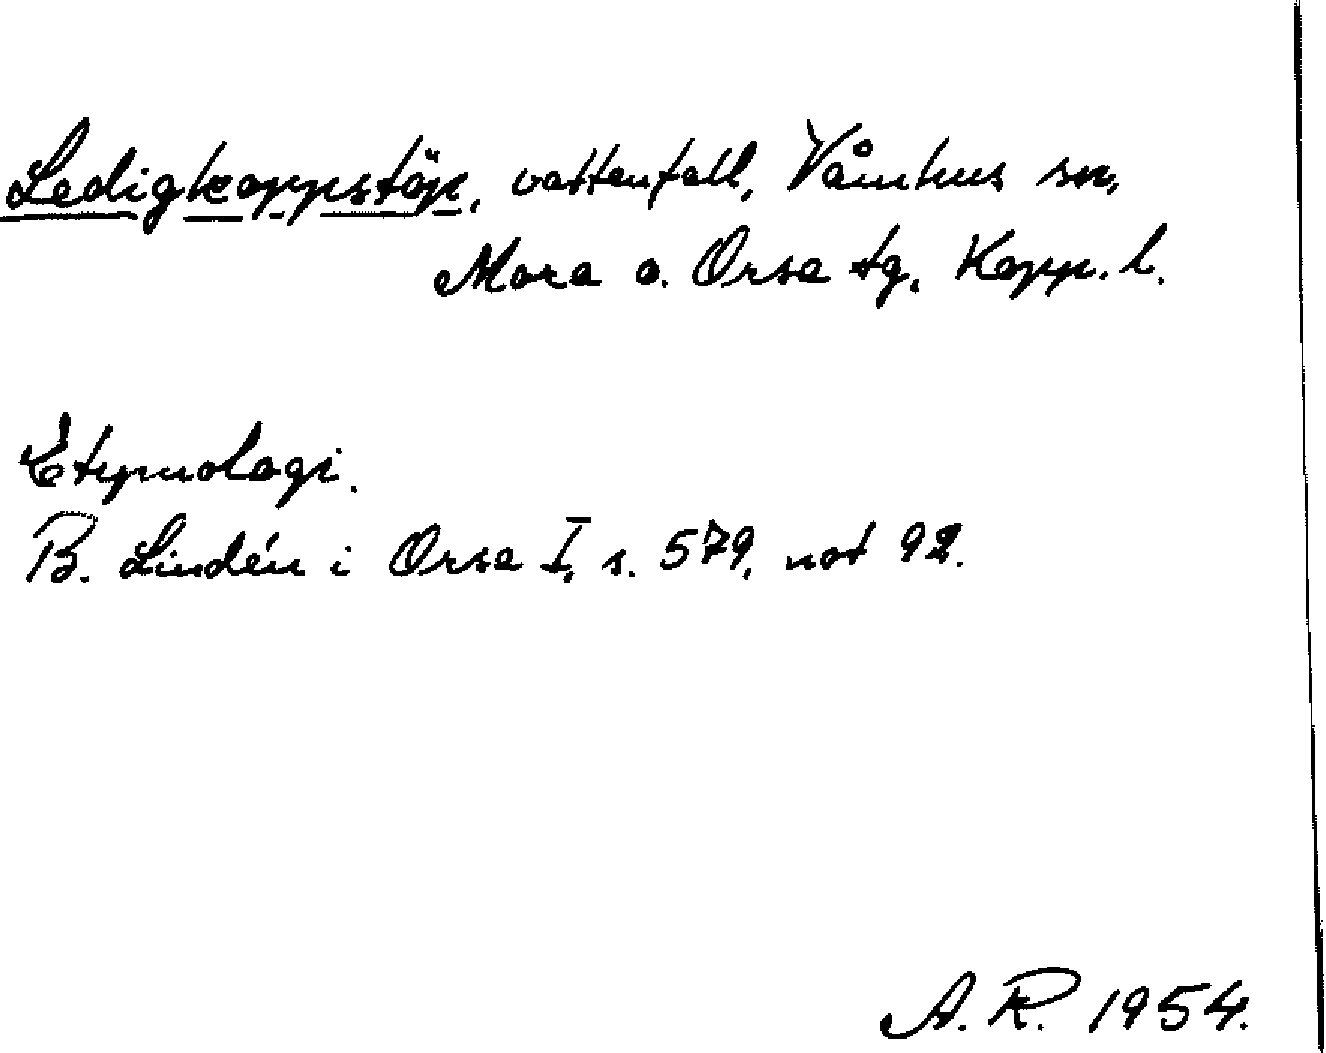 Ledigkoppstöp, vattenfall, Våmhus sn,
Mora o. Orsa tg, Kopp. l.
Etymologi.
B. Lindén i Orsa I, s. 579, not 92.
A. R. 1954.